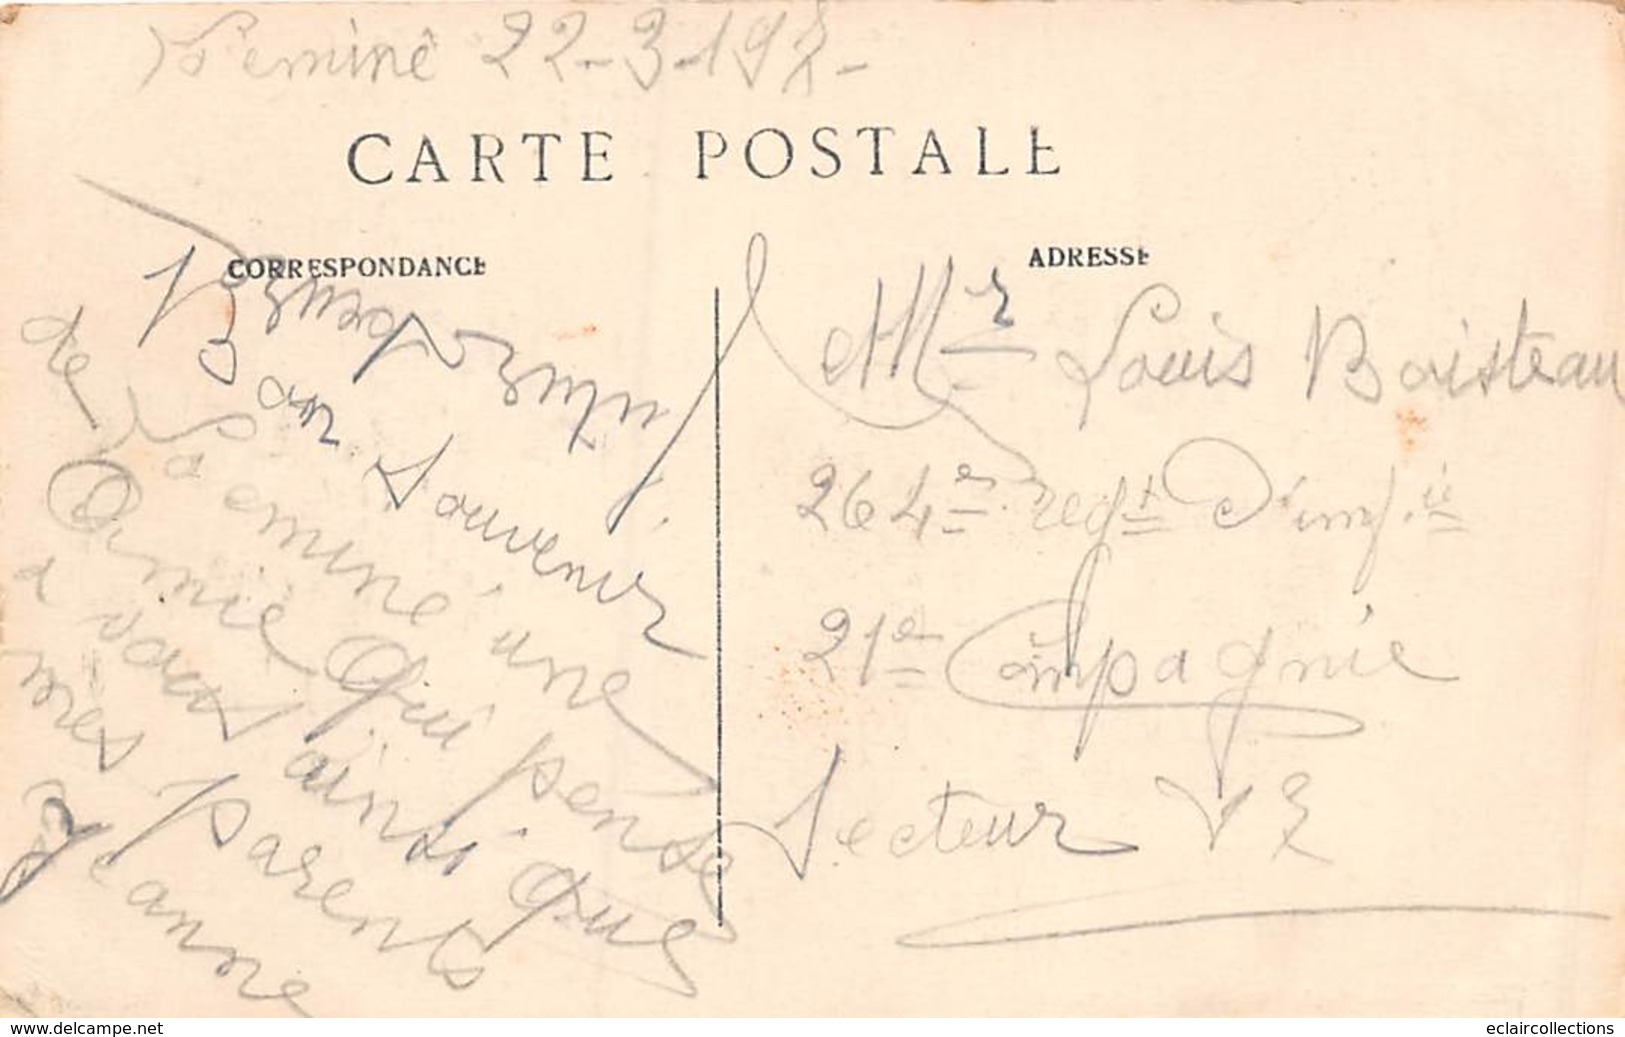 Péminé 22-3-191
CARTE POSTALE
CORRESPONDANCE
ADRESSE
Bon Souvenir
de Péminé une
Amie Qui pense
a vous ainsi Que
mes parents
Jeanne
Mr Louis Boisteau
264e regt d'inf.ie
21e Compagnie
Secteur
www.delcampe.net
eclaircollections